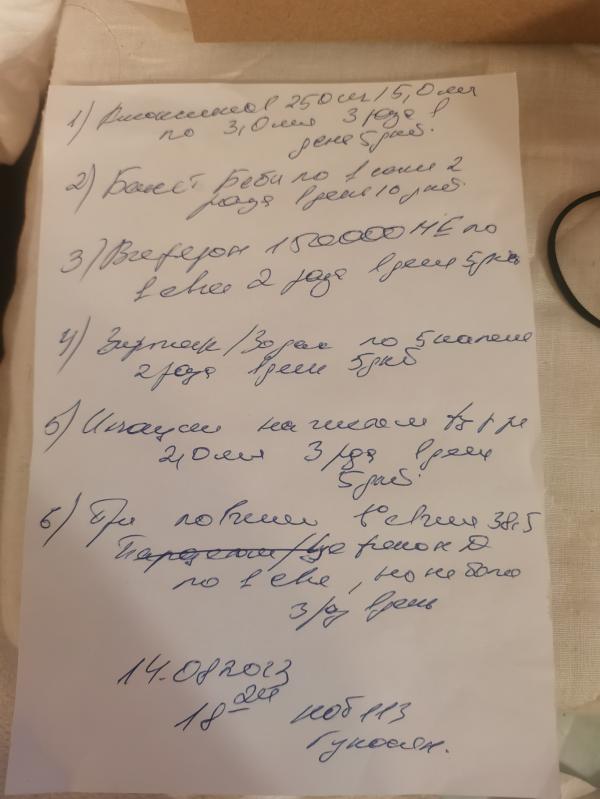 1) Амоксиклав 250 мг/5,0 мл
по 3,0 мл 3 раза в
день 5 дней.
2) Бак Сет Беби по 1 саше 2
раза в день 10 дней
3) Виферон 150000 МЕ по
1 свече 2 раза в день 5 дней
4) Зиртек/Зодак по 5 капель
2 раза в день 5 дней
5) Ингаляции на физ р-ре
2,0 мл 3 раза в день
5 дней.
6) При t° свыше 38,5
Цефекон Д
по 1 свече, но не более
3 р/д в день
14.08.2023
18 24 каб 113